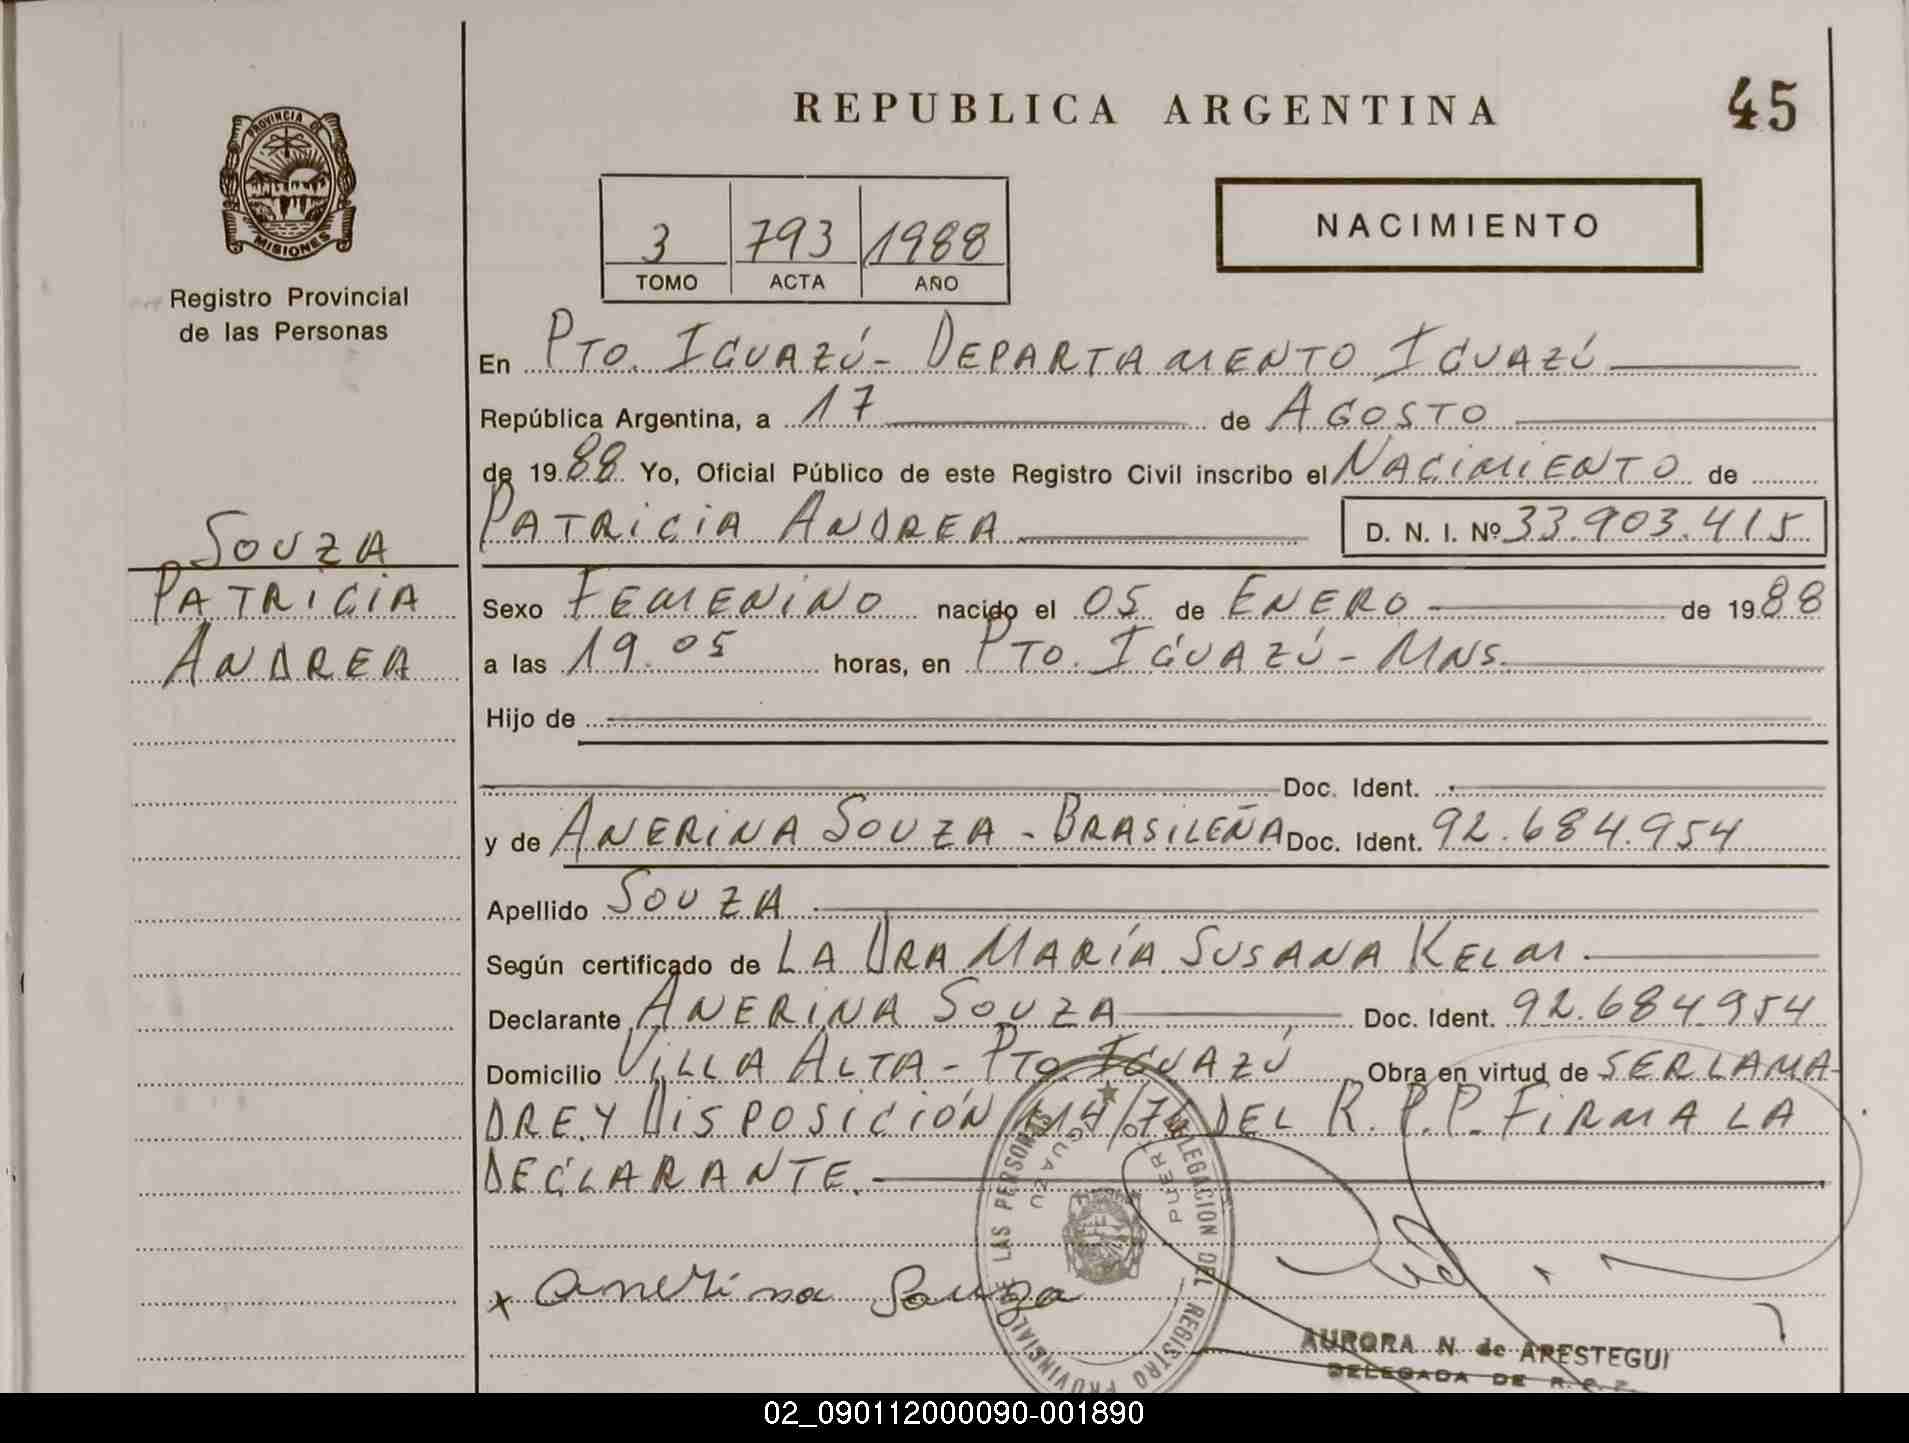 REPUBLICA ARGENTINA
45
PROVINCIA DE
MISIONES
Registro Provincial
de las Personas
3 793 1988
TOMO ACTA AÑO
NACIMIENTO
En PTO. IGUAZÚ - DEPARTAMENTO IGUAZÚ
República Argentina, a 17 de AGOSTO
de 1988 Yo, Oficial Público de este Registro Civil inscribo el NACIMIENTO de
PATRICIA ANDREA D. N. I. Nº 33.903.415
SOUZA
PATRICIA
ANDREA
Sexo FEMENINO nacido el 05 de ENERO de 1988
a las 19.05 horas, en PTO. IGUAZÚ - MNS.
Hijo de
Doc. Ident.
y de ANERINA SOUZA - BRASILEÑA Doc. Ident. 92.684.954
Apellido SOUZA
Según certificado de LA DRA MARÍA SUSANA KELM
Declarante ANERINA SOUZA Doc. Ident. 92.684.954
Domicilio VILLA ALTA - PTO. IGUAZÚ Obra en virtud de SER LA MA-
DRE Y DISPOSICIÓN 114/74 DEL R.P.P. FIRMA LA
DECLARANTE.
x Anerina Souza
DELEGACION DEL REGISTRO PROVINCIAL DE LAS PERSONAS
PUERTO IGUAZU
AURORA N. de ARESTEGUI
DELEGADA DE R. P. P.
02_090112000090-001890